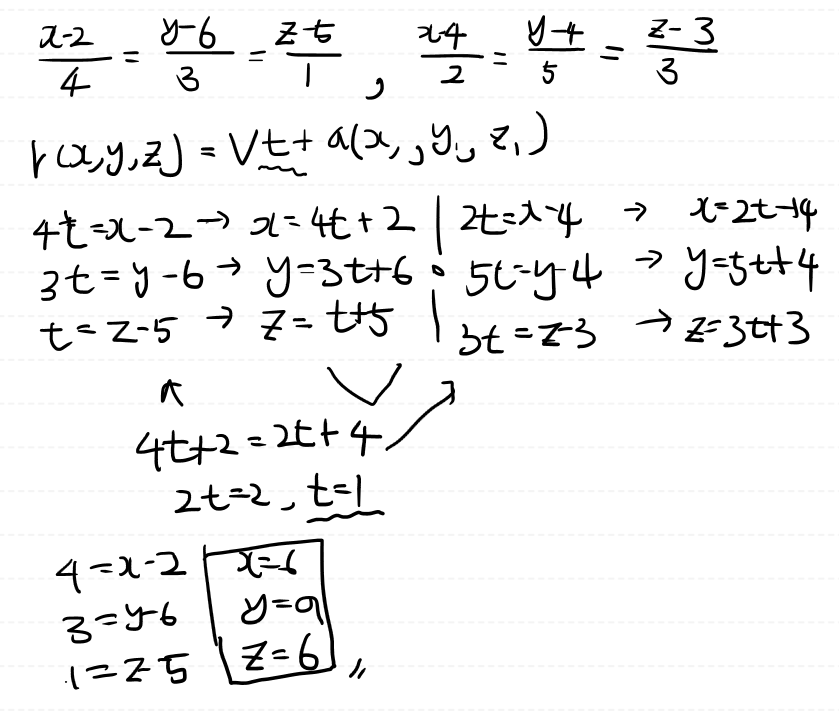 x-2/4 = y-6/3 = z-5/1 , x-4/2 = y-4/5 = z-3/3
r(x,y,z) = Vt + a(x₁, y₁, z₁)
4t=x-2 → x=4t+2 | 2t=x-4 → x=2t+4
3t=y-6 → y=3t+6 5t=y-4 → y=5t+4
t=z-5 → z=t+5 | 3t=z-3 → z=3t+3
4t+2=2t+4
2t=2, t=1
4=x-2 x=6
3=y-6 y=9
1=z-5 z=6 〃